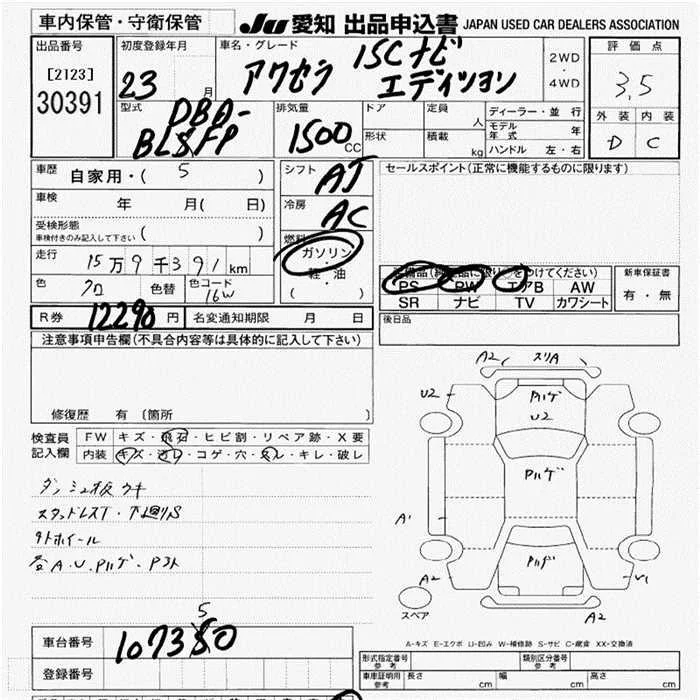 車内保管・守衛保管
JU 愛知 出品申込書 JAPAN USED CAR DEALERS ASSOCIATION
出品番号
[2123]
30391
初度登録年月
23 月
車名・グレード
アクセラ 15Cナビ
エディション
2WD
・
4WD
評価点
3.5
外装 内装
D C
型式
DBA-
BL5FP
排気量
1500 CC
ドア
定員
人
形状
積載
kg
ディーラー・並行
モデル年式 年
ハンドル 左・右
車歴
自家用・( 5 )
車検 年 月( 日)
受検形態
車検付きのみ記入して下さい ( )
走行 15万9千391 km
色 色替 色コード
16W
シフト
AT
冷房
AC
燃料
ガソリン
・
軽油
( )
セールスポイント(正常に機能するものに限ります)
PS PW エアB AW
SR ナビ TV カワシート
新車保証書
有・無
R券 12290 円 名変通知期限 月 日
後日品
注意事項申告欄(不具合内容等は具体的に記入して下さい)
修復歴 有 〔箇所 〕
検査員
記入欄
FW キズ・飛石・ヒビ割・リペア跡・X要
内装 キズ・汚レ・コゲ・穴・スレ・キレ・破レ
ダッシュ板ウキ
スタッドレスT・下廻りS
外ホイール
各A.U.Pハゲ・
A2 スリA
U2
Pハゲ
U2
U2
Pハゲ
A1
Pハゲ
A2
V1
A2
スペア
車台番号
5
107350
登録番号
A-キズ E-エクボ U-凹み W-補修跡 S-サビ C-腐食 XX-交換済
形式指定番号
参考
類別区分番号
参考
車庫証明用
参考
長さ cm 幅 cm 高さ cm